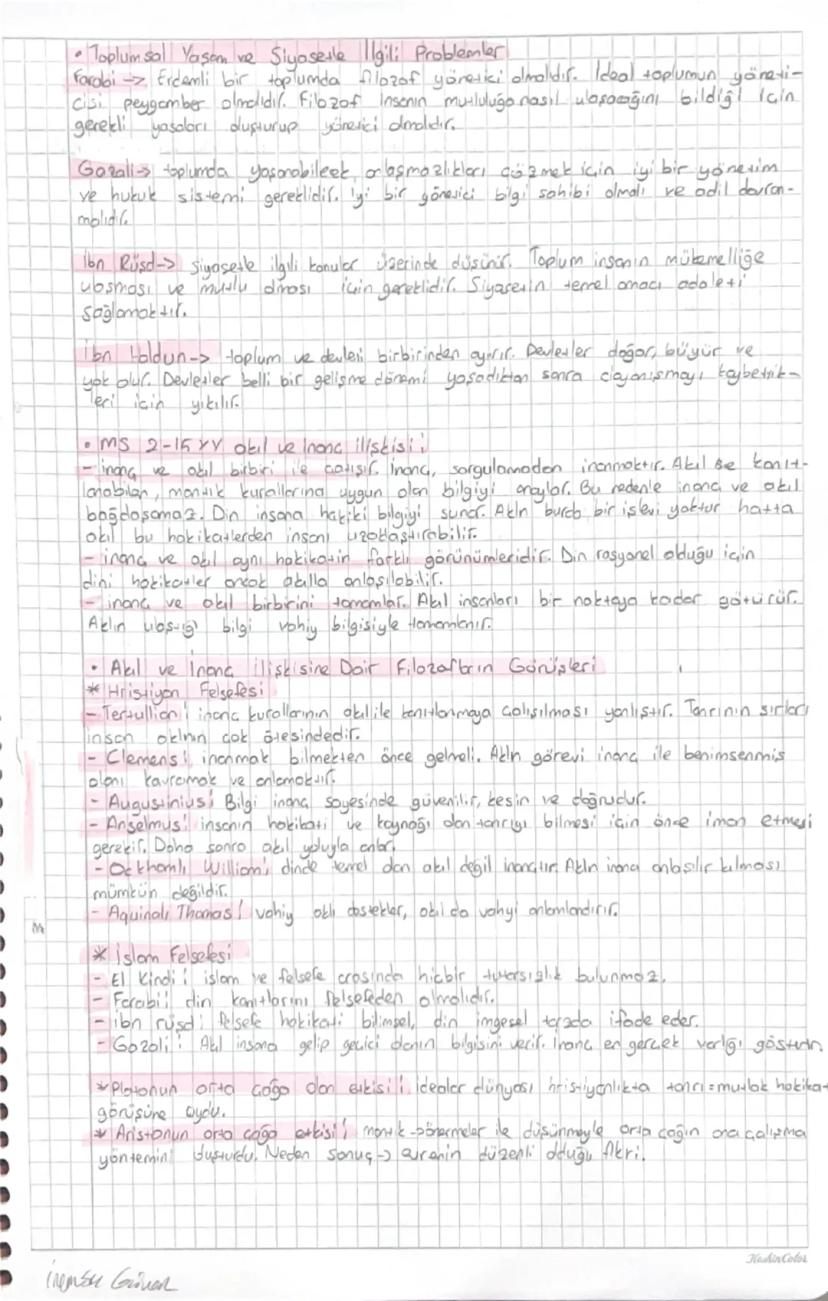 • Toplumsal Yaşam ve Siyasetle İlgili Problemler
Farabi -> Erdemli bir toplumda filozof yönetici olmalıdır. İdeal toplumun yöneti-
cisi peygamber olmalıdır. Filozof insanın mutluluğa nasıl ulaşacağını bildiği için
gerekli yasaları oluşturup yönetici olmalıdır.
Gazali -> toplumda yaşanabilecek anlaşmazlıkları çözmek için iyi bir yönetim
ve hukuk sistemi gereklidir. İyi bir yönetici bilgi sahibi olmalı ve adil davran-
malıdır.
İbn Rüşd -> siyasetle ilgili konular üzerinde düşünür. Toplum insanın mükemelliğe
ulaşması ve mutlu olması için gereklidir. Siyasetin temel amacı adaleti
sağlamaktır.
İbn Haldun -> toplum ve devleti birbirinden ayırır. Devletler doğar, büyür ve
yok olur. Devletler belli bir gelişme dönemi yaşadıktan sonra dayanışmayı kaybettik-
leri için yıkılır.
• MS 2-15 YY akıl ve inanç ilişkisi;
- inanç ve akıl birbiri ile çatışır. İnanç, sorgulamadan inanmaktır. Akıl ise kanıt-
lanabilen, mantık kurallarına uygun olan bilgiyi onaylar. Bu nedenle inanç ve akıl
bağdaşamaz. Din insana hakiki bilgiyi sunar. Aklın burda bir işlevi yoktur hatta
akıl bu hakikatlerden insanı uzaklaştırabilir.
- inanç ve akıl aynı hakikatin farklı görünümleridir. Din rasyonel olduğu için
dini hakikatler ancak akılla anlaşılabilir.
- inanç ve akıl birbirini tamamlar. Akıl insanları bir noktaya kadar götürür.
Aklın ulaştığı bilgi vahiy bilgisiyle tamamlanır.
• Akıl ve İnanç İlişkisine Dair Filozofların Görüşleri
* Hristiyan Felsefesi
- Tertullian; inanç kurallarının akıl ile kanıtlanmaya çalışılması yanlıştır. Tanrının sırları
insan aklının çok ötesindedir.
- Clemens; inanmak bilmekten önce gelmeli. Aklın görevi inanç ile benimsenmiş
olanı kavramak ve anlamaktır.
- Augustinius; Bilgi inanç sayesinde güvenilir, kesin ve doğrudur.
- Anselmus; insanın hakikati ve kaynağı olan tanrıyı bilmesi için önce iman etmesi
gerekir. Daha sonra akıl yoluyla anlar.
- Ockhamlı William; dinde temel olan akıl değil inançtır. Aklın inancı anlaşılır kılması
mümkün değildir.
- Aquinalı Thomas; vahiy aklı destekler, akıl da vahyi anlamlandırır.
* İslam Felsefesi
- El Kindi; islam ve felsefe arasında hiçbir tutarsızlık bulunmaz.
- Farabi; din kanıtlarını felsefeden almalıdır.
- ibn rüşd; felsefe hakikati bilimsel, din imgesel tarzda ifade eder.
- Gazali; Akıl insana gelip geçici olanın bilgisini verir. İnanç en gerçek varlığı gösterir.
* Platonun orta çağa olan etkisi; idealar dünyası hristiyanlıkta tanrı = mutlak hakikat
görüşüne uydu.
* Aristonun orta çağa etkisi; mantık -> önermeler ile düşünmeyle orta çağın ana çalışma
yöntemini oluşturdu. Neden sonuç -> evrenin düzenli olduğu fikri.
KeskinColor